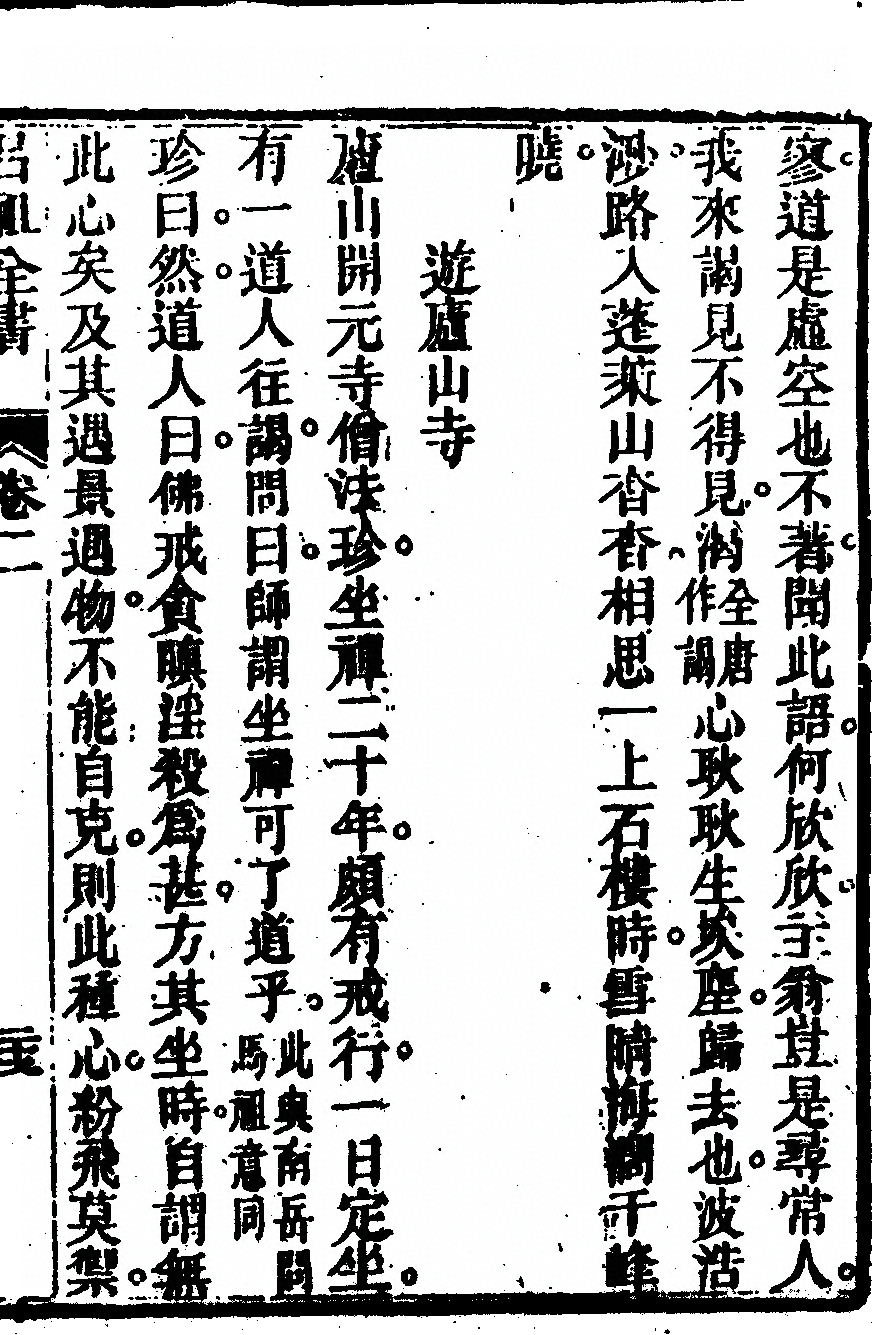 寥道是虛空也不著聞此語何欣欣主翁豈是尋常人
我來謁見不得見渴全唐作謁心耿耿生埃塵歸去也波浩
渺路入蓬萊山杳杳相思一上石樓時雪晴海濶千峰
曉
遊廬山寺
廬山開元寺僧法珍坐禪二十年頗有戒行一日定坐
有一道人往謁問曰師謂坐禪可了道乎此與南岳問馬祖意同
珍曰然道人曰佛戒貪瞋淫殺爲甚方其坐時自謂無
此心矣及其遇景遇物不能自克則此種心粉飛莫禦
呂祖全書 卷二